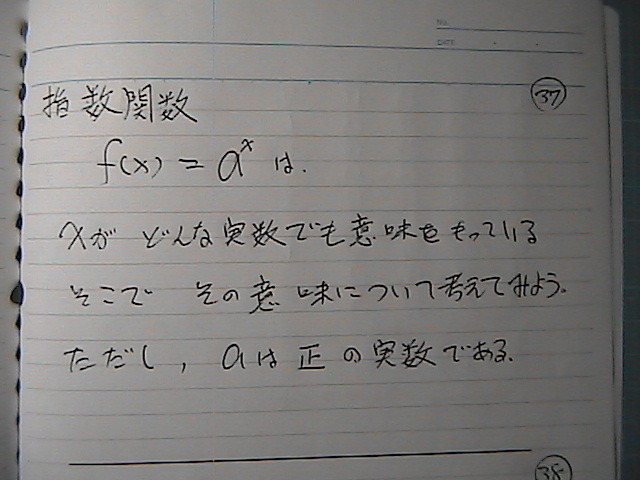 No.
DATE
㊲
指数関数
f(x) = a^x は.
xが どんな実数でも意味をもっている
そこで その意味について考えてみよう.
ただし, aは正の実数である.
㊳